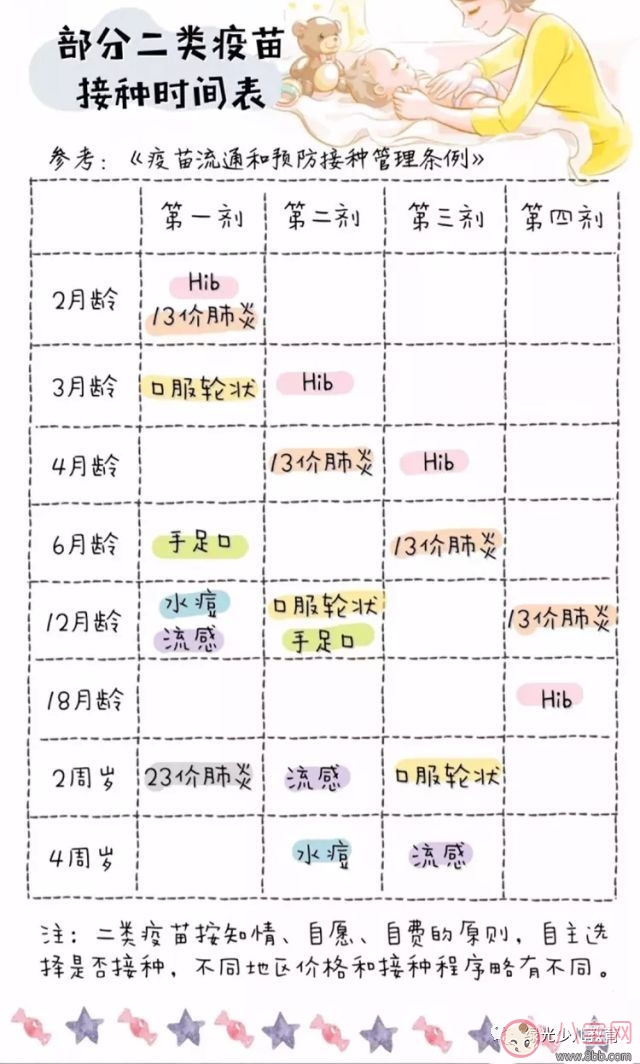 部分二类疫苗
接种时间表
参考：《疫苗流通和预防接种管理条例》
第一剂 第二剂 第三剂 第四剂
2月龄 Hib
13价肺炎
3月龄 口服轮状 Hib
4月龄 13价肺炎 Hib
6月龄 手足口 13价肺炎
12月龄 水痘 口服轮状 13价肺炎
流感 手足口
18月龄 Hib
2周岁 23价肺炎 流感 口服轮状
4周岁 水痘 流感
注：二类疫苗按知情、自愿、自费的原则，自主选
择是否接种，不同地区价格和接种程序略有不同。
www.8bb.com